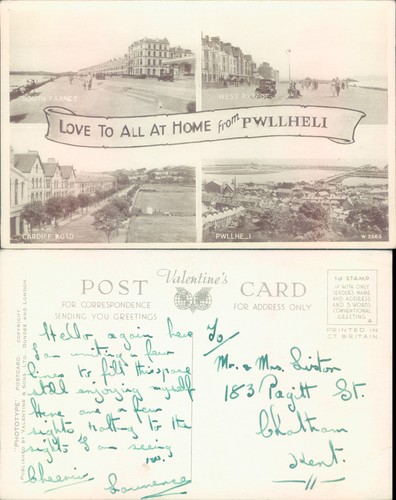 SOUTH PARADE
WEST PARADE
LOVE TO ALL AT HOME from PWLLHELI
CARDIFF ROAD
PWLLHELI
W 2563
POST Valentine's CARD
FOR CORRESPONDENCE
SENDING YOU GREETINGS
FOR ADDRESS ONLY
1d STAMP
IF WITH ONLY
SENDER'S NAME
AND ADDRESS
AND 5 WORDS
CONVENTIONAL
GREETING
PRINTED IN
GT. BRITAIN
"PHOTOTYPE" POSTCARD. COPYRIGHT.
PUBLISHED BY VALENTINE & SONS, LTD. DUNDEE AND LONDON
Hello again here
I am writing a few
lines to fill this space
still enjoying myself
Here are a few
sights nothing to the
sights I am seeing
now.
Cheerio
Lawrence
To/
Mr. & Mrs.
183 Pagitt St.
Chatham
Kent.